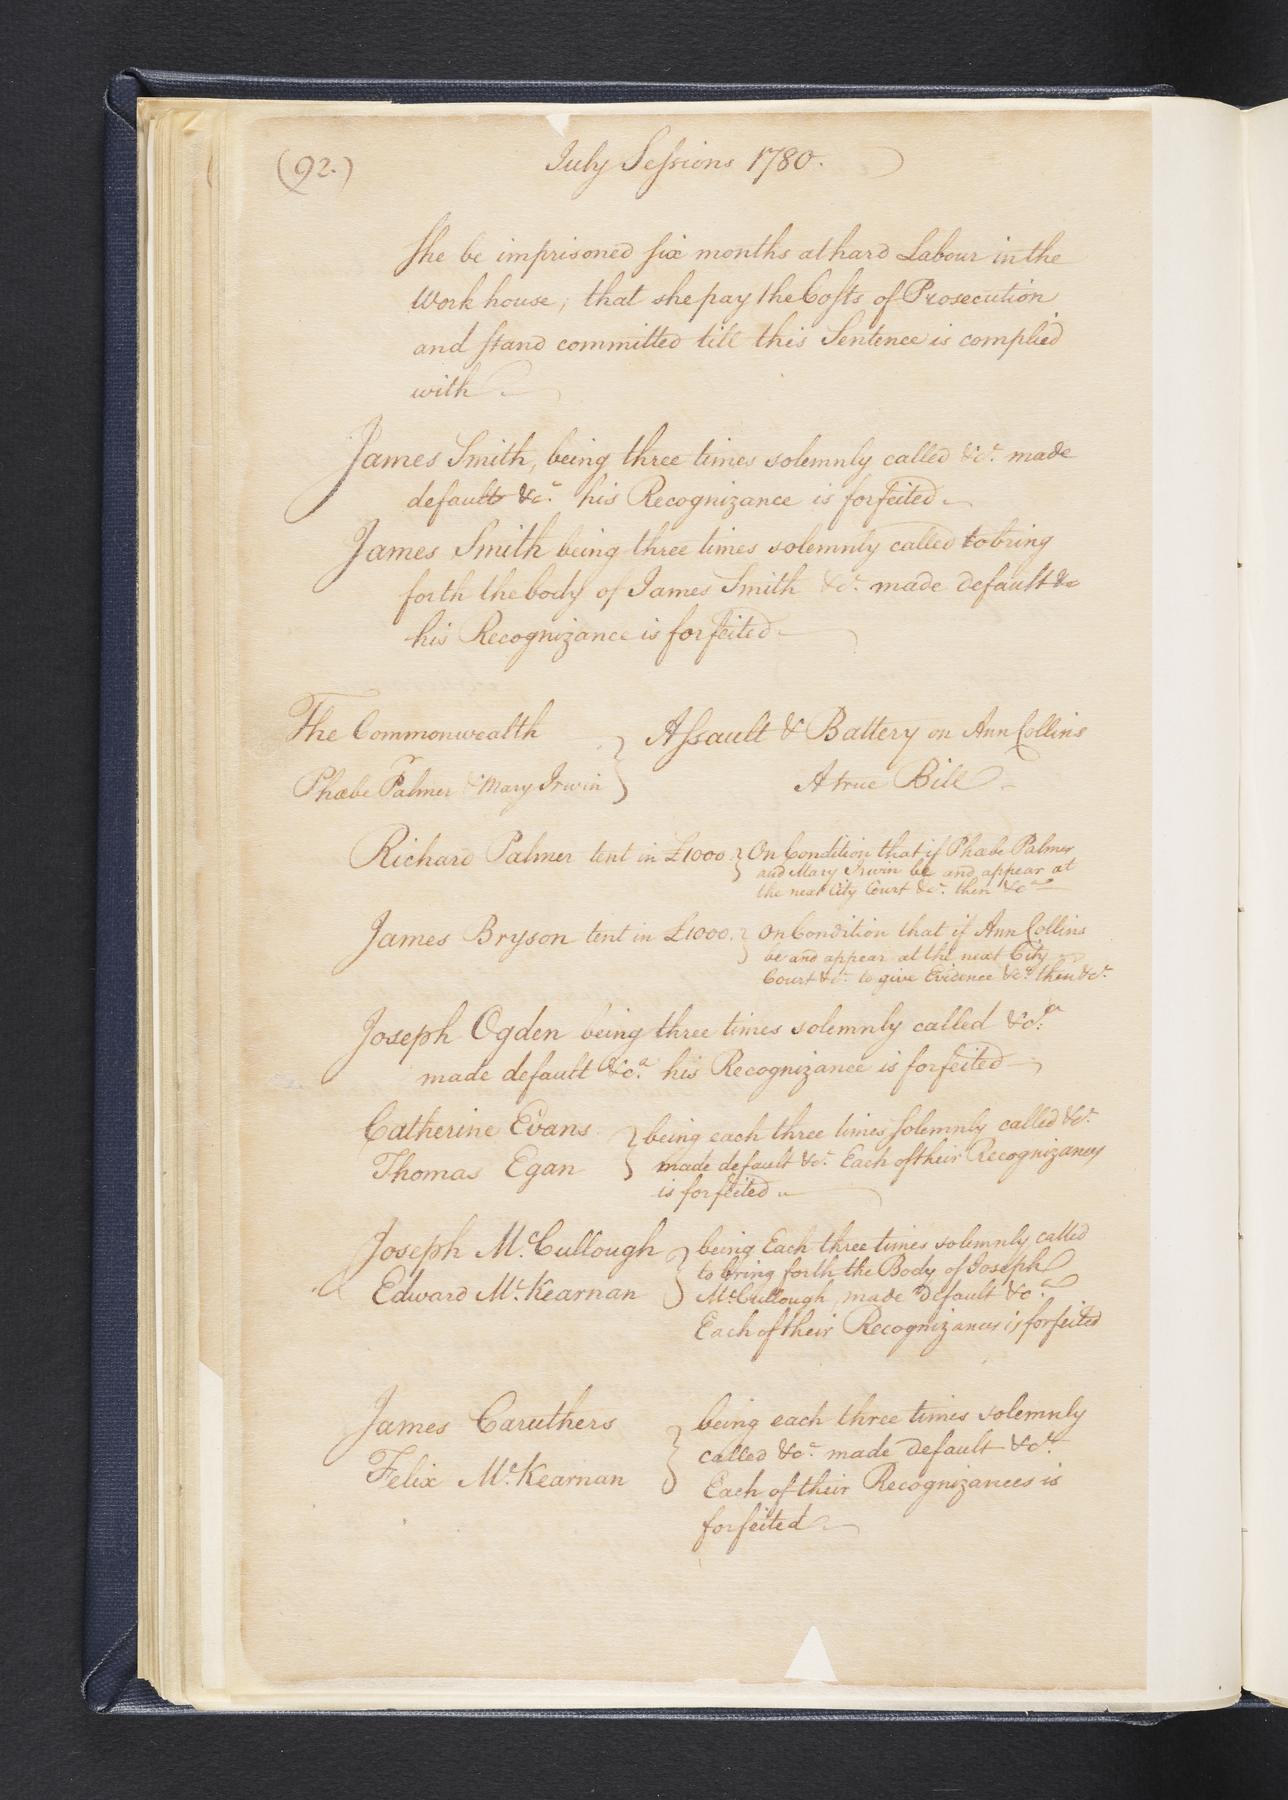 (92.) July Sessions 1780.
She be imprisoned six months at hard Labour in the
Work house, that she pay the Costs of Prosecution
and stand committed till this Sentence is complied
with
James Smith, being three times solemnly called &c. made
default &c. his Recognizance is forfeited
James Smith being three times solemnly called to bring
forth the body of James Smith &c. made default &c
his Recognizance is forfeited
The Commonwealth } Assault & Battery on Ann Collins
v
Phœbe Palmer & Mary Irwin } A true Bill
Richard Palmer tent in £1000 } On Condition that if Phœbe Palmer
and Mary Irwin be and appear at
the next City Court &c. then &c
James Bryson tent in £1000. } On Condition that if Ann Collins
be and appear at the next City
Court &c. to give Evidence &c. then &c.
Joseph Ogden being three times solemnly called &c.a
made default &c.a his Recognizance is forfeited
Catherine Evans } being each three times Solemnly called &c.
Thomas Egan } made default &c. Each of their Recognizances
is forfeited
Joseph McCullough } being Each three times solemnly called
to bring forth the Body of Joseph
Edward McKearnan } McCullough, made default &c.
Each of their Recognizances is forfeited
James Caruthers } being each three times solemnly
called &c. made default &c.
Felix McKearnan } Each of their Recognizances is
forfeited